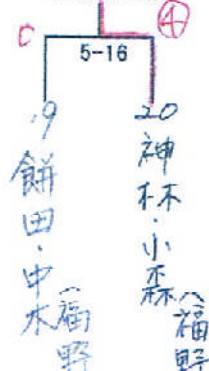 0 ④
5-16
19 餅田・中水(福野
20 神林・小森(福野